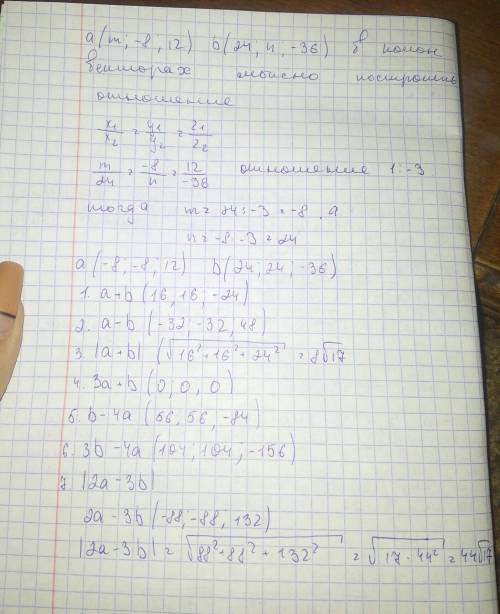 a (m; -8; 12) b (24, n, -36) В колон
векторах можно построить
отношение
x₁/x₂ = y₁/y₂ = z₁/z₂
m/24 = -8/n = 12/-36 отношение 1:-3
тогда m = 24 : -3 = -8, а
n = -8 · -3 = 24
a (-8; -8; 12) b (24; 24; -36)
1. a+b (16, 16, -24)
2. a-b (-32, -32, 48)
3. |a+b| (√16²+16²+24² = 8√17
4. 3a+b (0, 0, 0)
5. b-4a (56, 56, -84)
6. 3b-4a (104; 104; -156)
7. |2a-3b|
2a-3b (-88, -88, 132)
|2a-3b| = √88²+88²+132² = √17·44² = 44√17